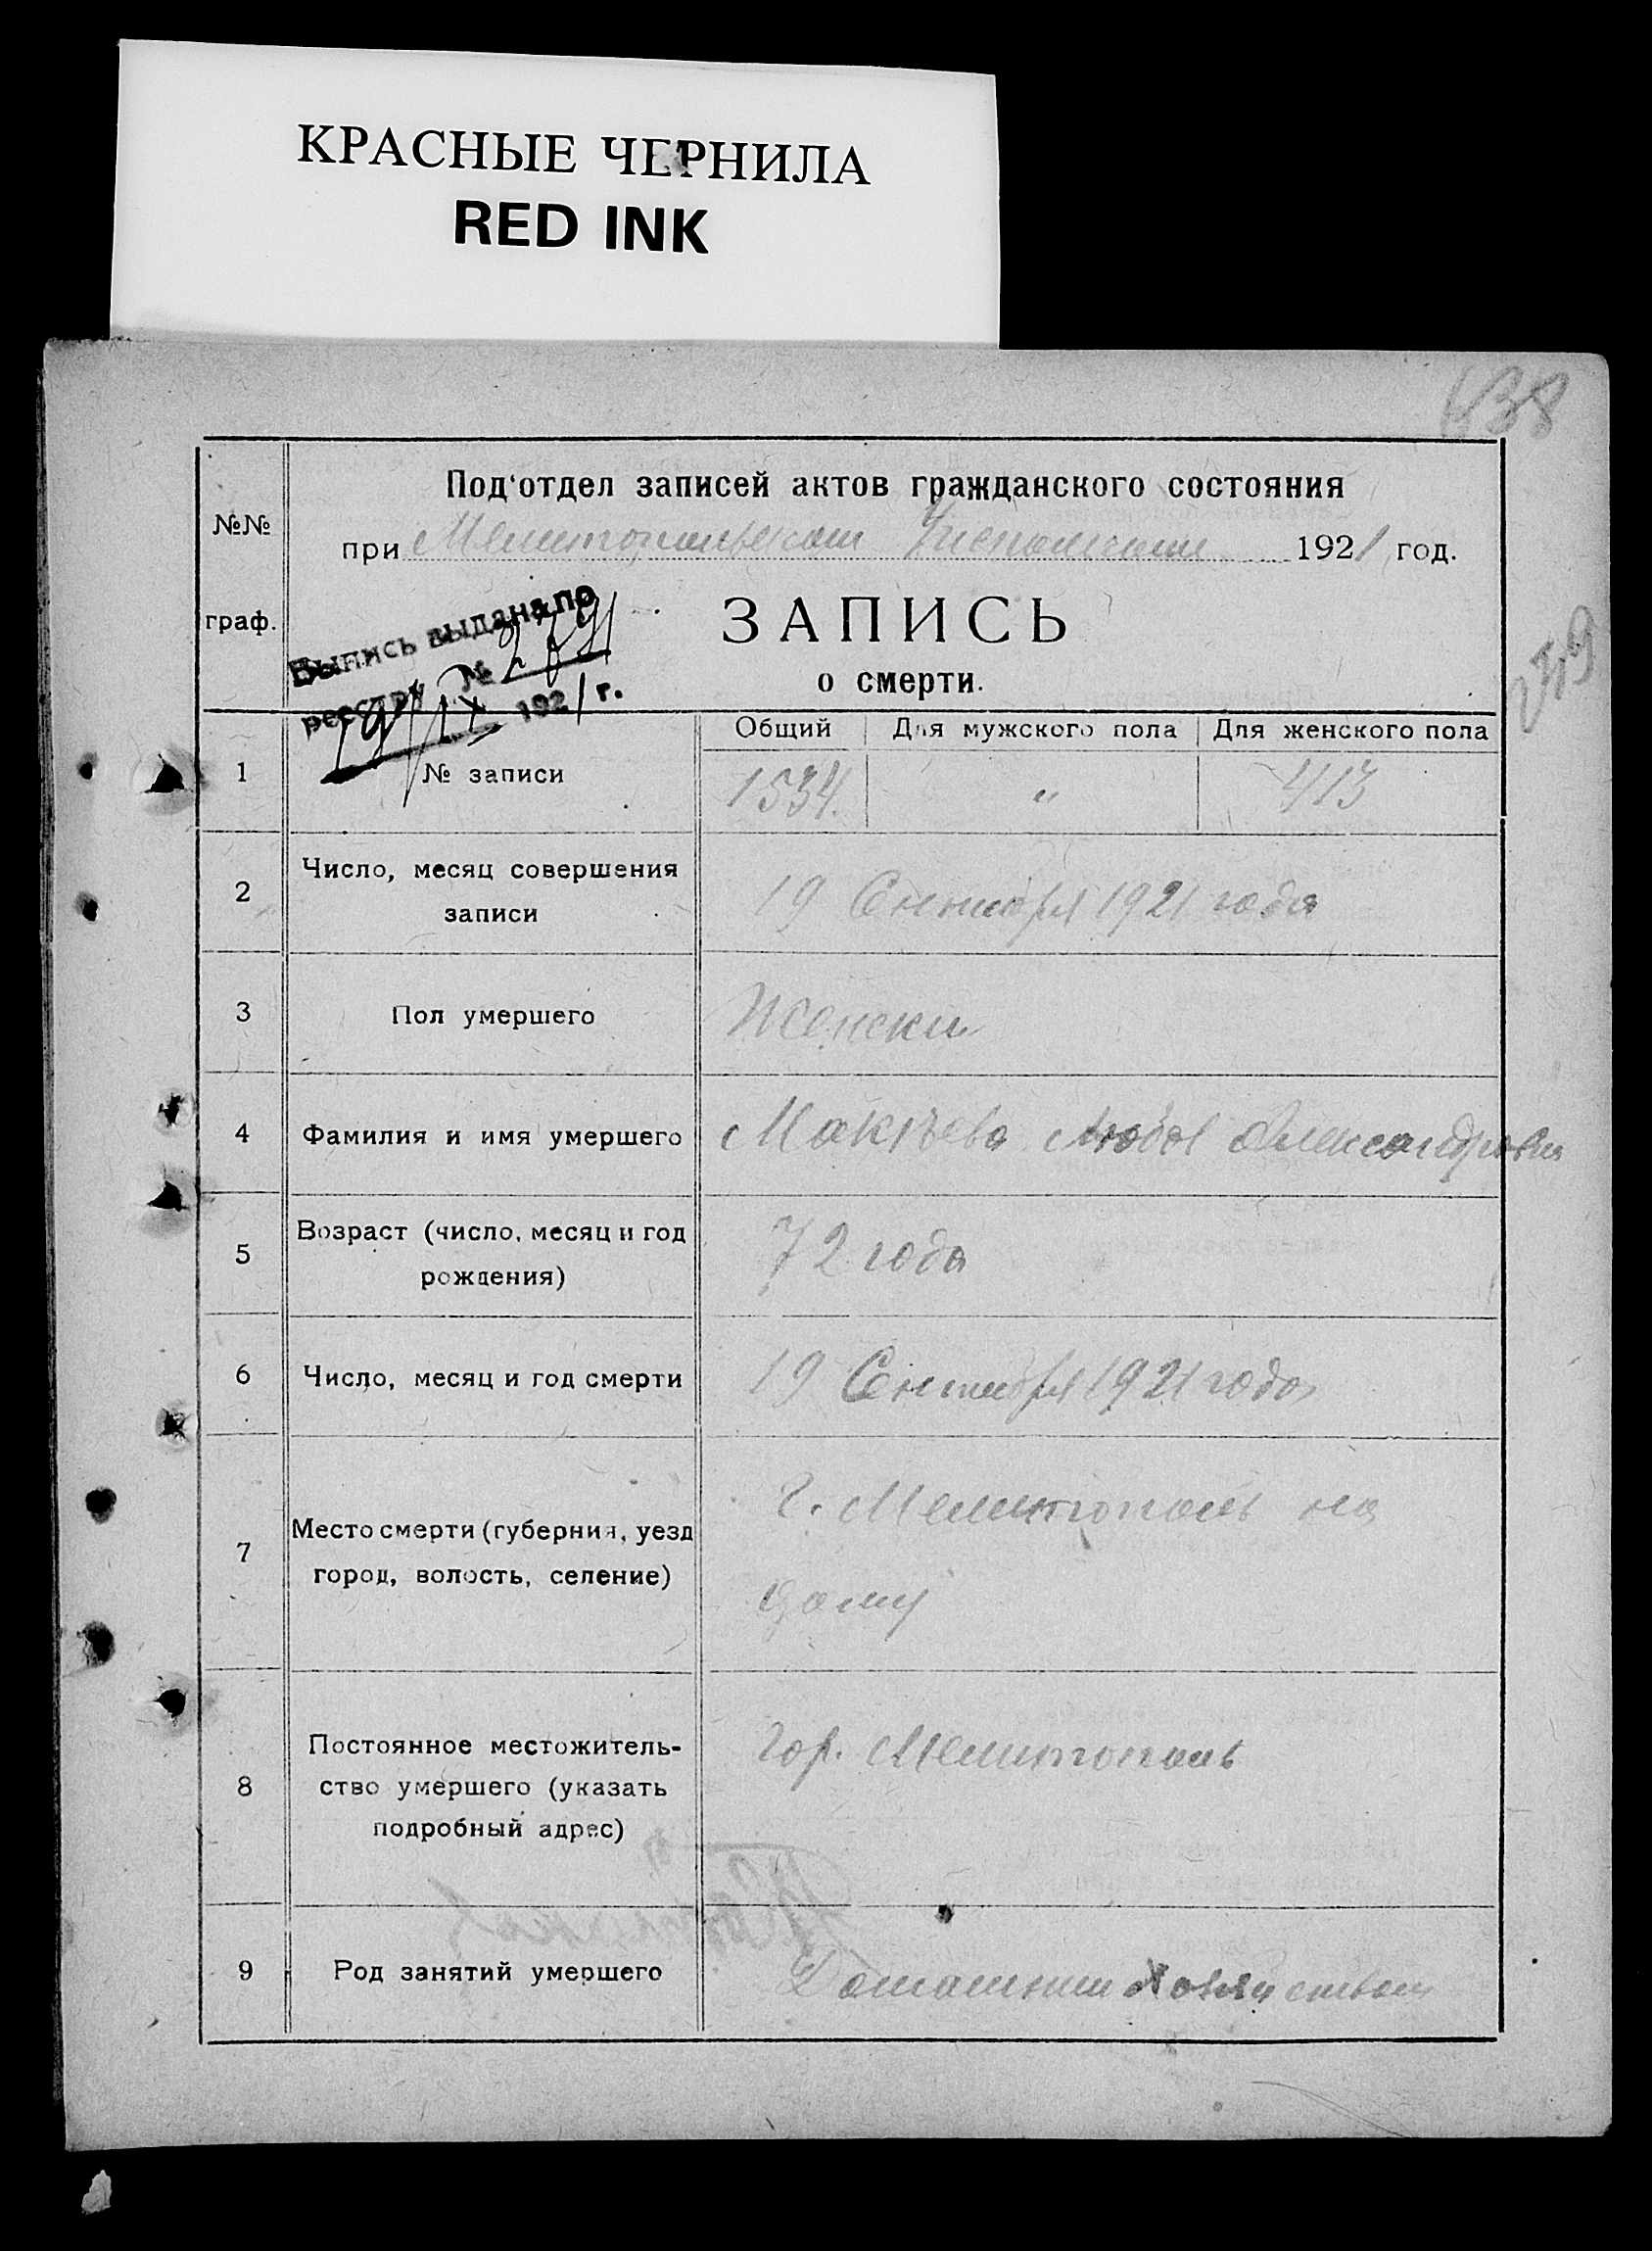 КРАСНЫЕ ЧЕРНИЛА
RED INK
438
№№
граф.
Под'отдел записей актов гражданского состояния
при Мелитопольском 1921 год.
Выпись выдана по
реестру №
19/IX 1921 г.
ЗАПИСЬ
о смерти.
239
1
№ записи
Общий
Для мужского пола
Для женского пола
1534.
"
413
2
Число, месяц совершения
записи
19 Сентября 1921 года
3
Пол умершего
Женски
4
Фамилия и имя умершего
Любов Александровна
5
Возраст (число, месяц и год
рождения)
72 года
6
Число, месяц и год смерти
19 Сентября 1921 года
7
Место смерти (губерния, уезд
город, волость, селение)
г. Мелитополь на
дому
8
Постоянное местожитель-
ство умершего (указать
подробный адрес)
Гор. Мелитополь
9
Род занятий умершего
Домашним